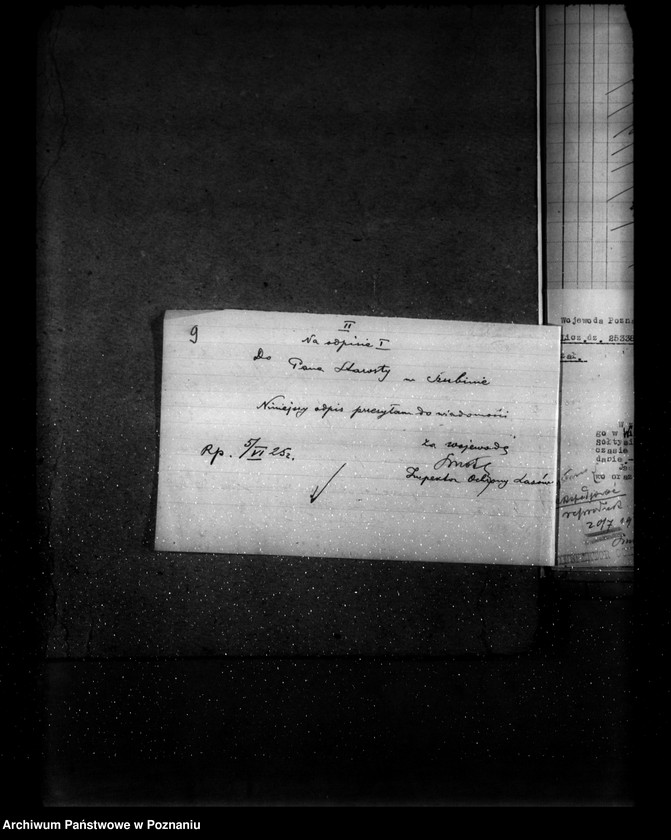 9
II
Na odpisie I
Do
Pana Starosty w Szubinie
Niniejszy odpis przesyłam do wiadomości
Rp. 5/VI 25r.
za wojewodę
Inspektor Ochrony Lasów
Wojewoda Pozn
Licz.dz. 2533
zał.
go w
Sołtysi
czasie
danie
go oraz
20/7
Archiwum Państwowe w Poznaniu